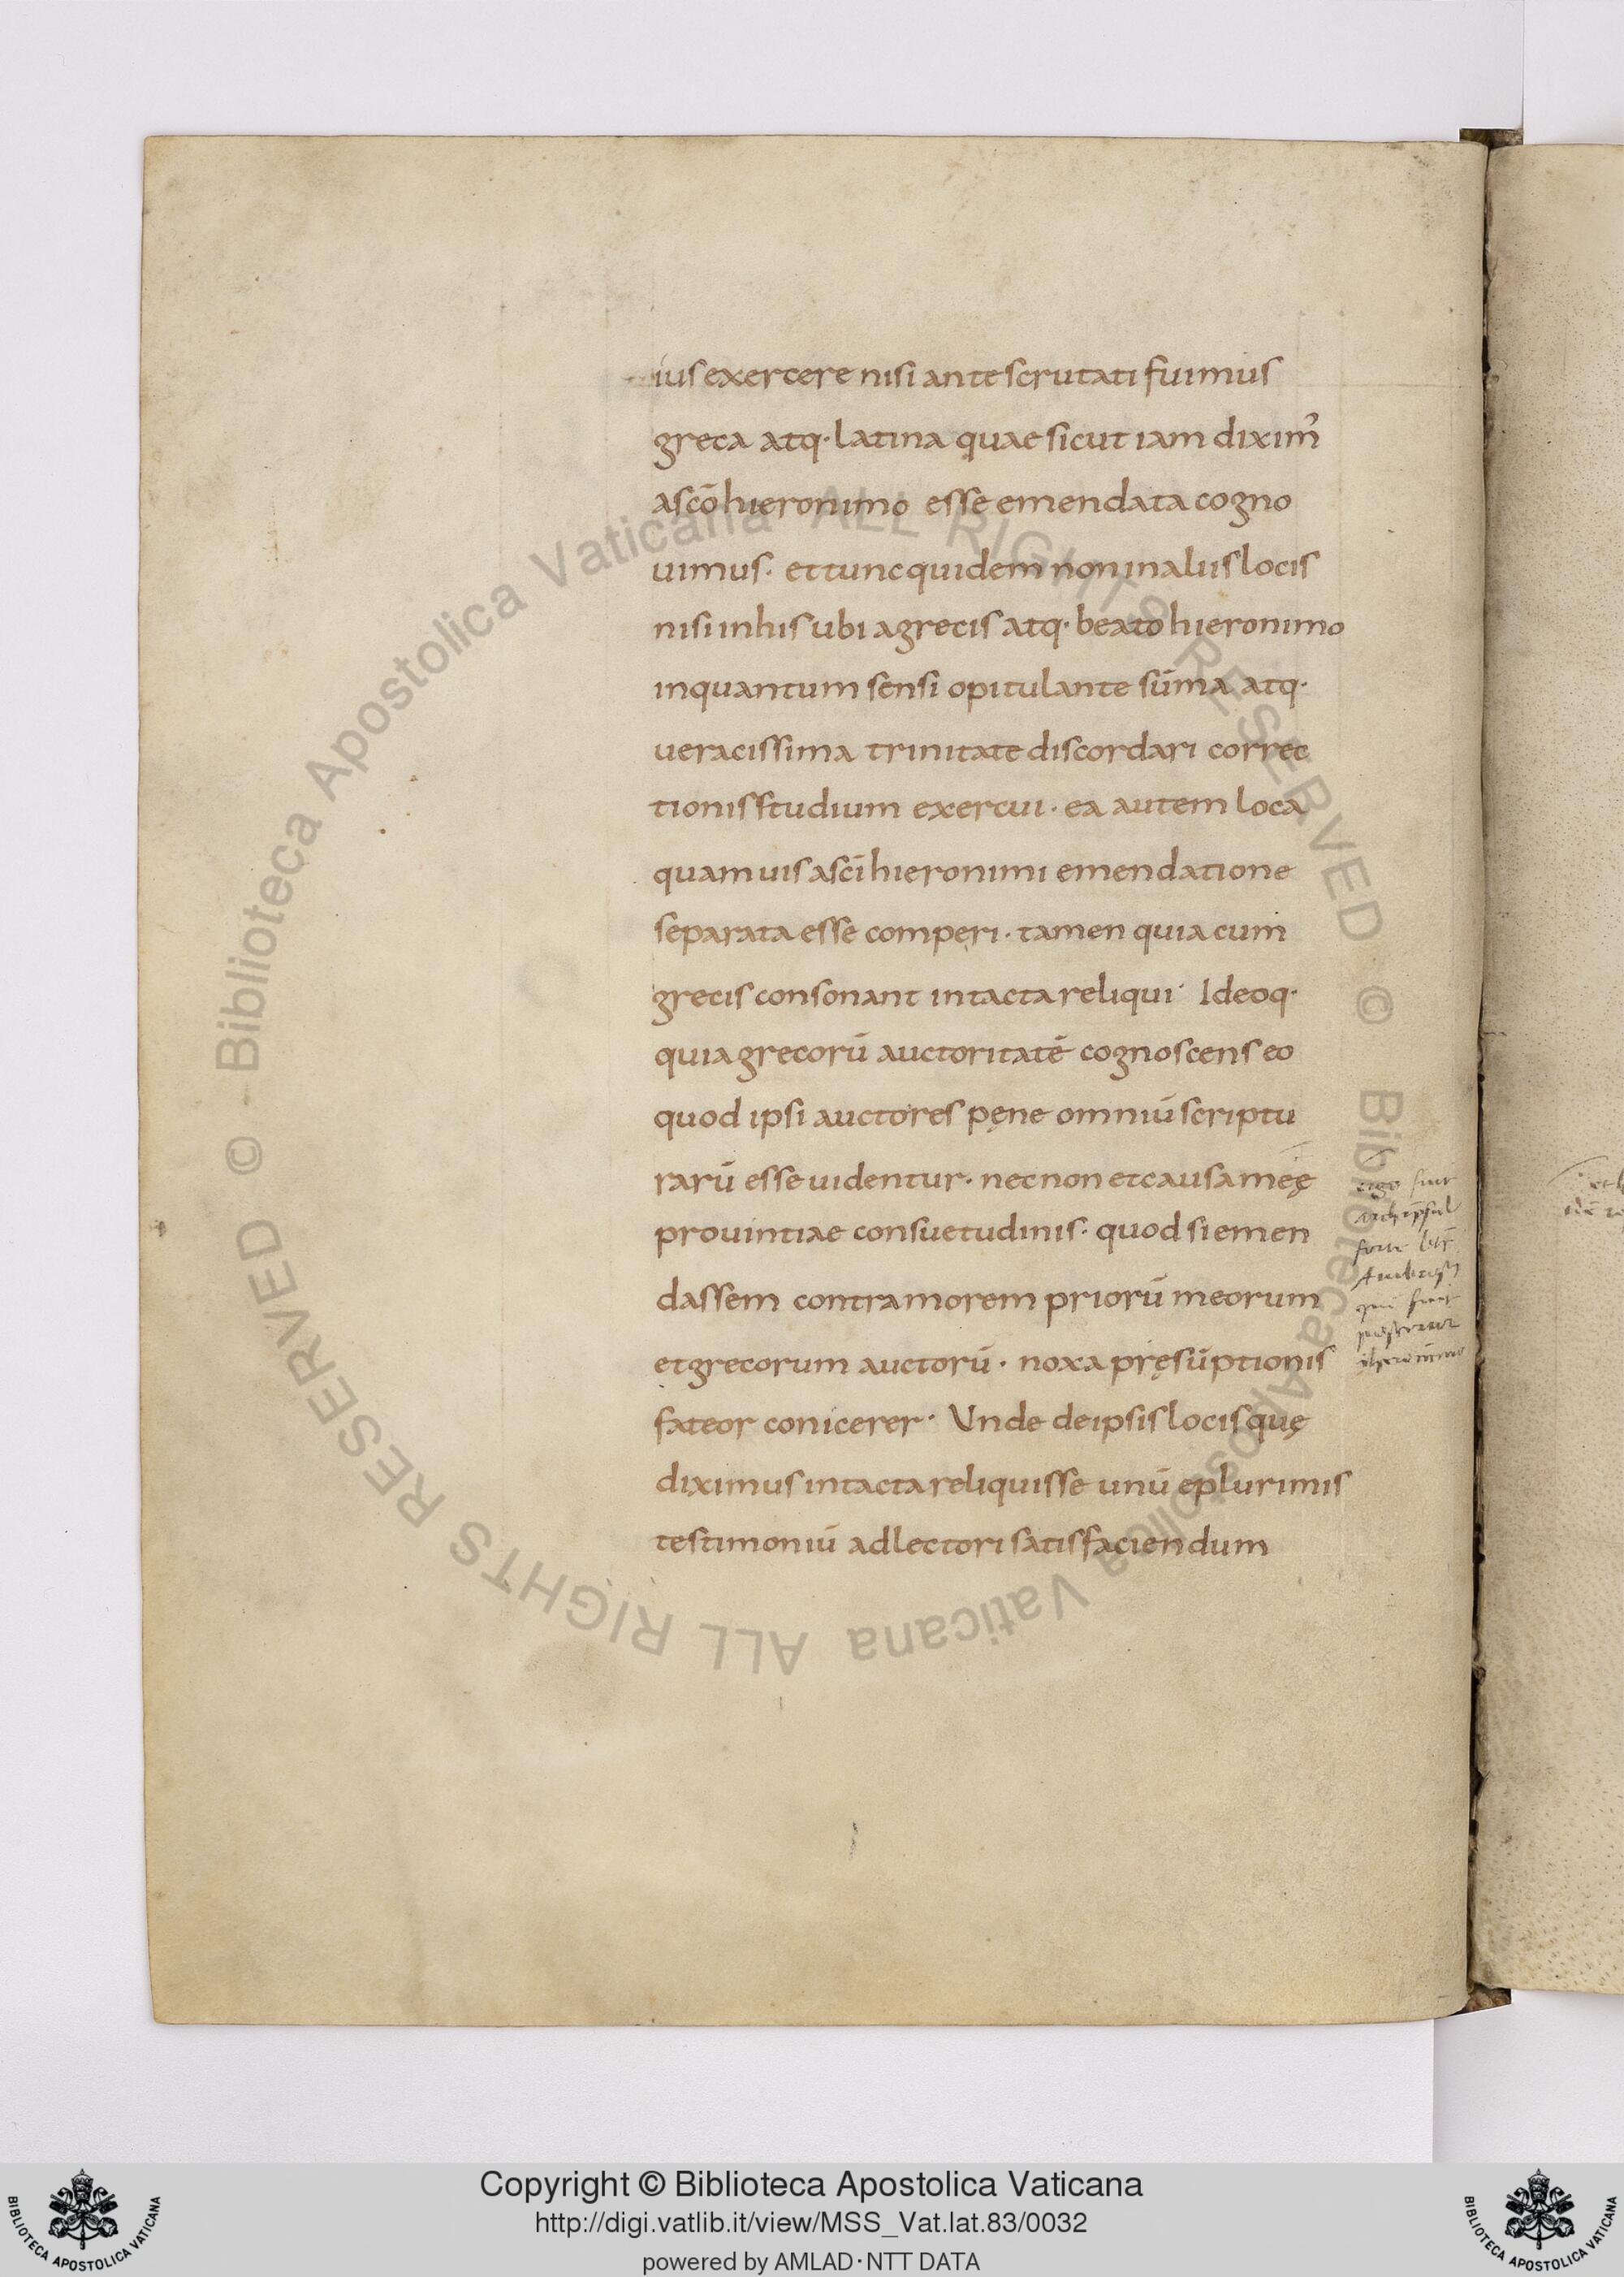 ius exercere nisi ante scrutati fuimus
greca atq· latina quae sicut iam dixim᾽
a sc̄o hieronimo esse emendata cogno
uimus· et tunc quidem non in aliis locis
nisi in his ubi a grecis atq· beato hieronimo
inquantum sensi opitulante sūma atq·
ueracissima trinitate discordari correc
tionis studium exercui· ea autem loca
quamuis a sc̄i hieronimi emendatione
separata esse comperi· tamen quia cum
grecis consonant intacta reliqui· Ideoq·
quia grecorū auctoritatē cognoscens eo
quod ipsi auctores pęne omniū scriptu
rarū esse uidentur· necnon et causa meę
prouintiae consuetudinis· quod si emen
dassem contra morem priorū meorum
et grecorum auctorū· noxa pręsūptionis
fateor conicerer· Unde de ipsis locis quę
diximus intacta reliquisse unū e plurimis
testimoniū ad lectori satisfaciendum
ergo fuit
forte
fuit
© - Biblioteca Apostolica Vaticana ALL RIGHTS RESERVED © Biblioteca Apostolica Vaticana ALL RIGHTS RESERVED
Copyright © Biblioteca Apostolica Vaticana
http://digi.vatlib.it/view/MSS_Vat.lat.83/0032
powered by AMLAD·NTT DATA
BIBLIOTECA APOSTOLICA VATICANA
BIBLIOTECA APOSTOLICA VATICANA